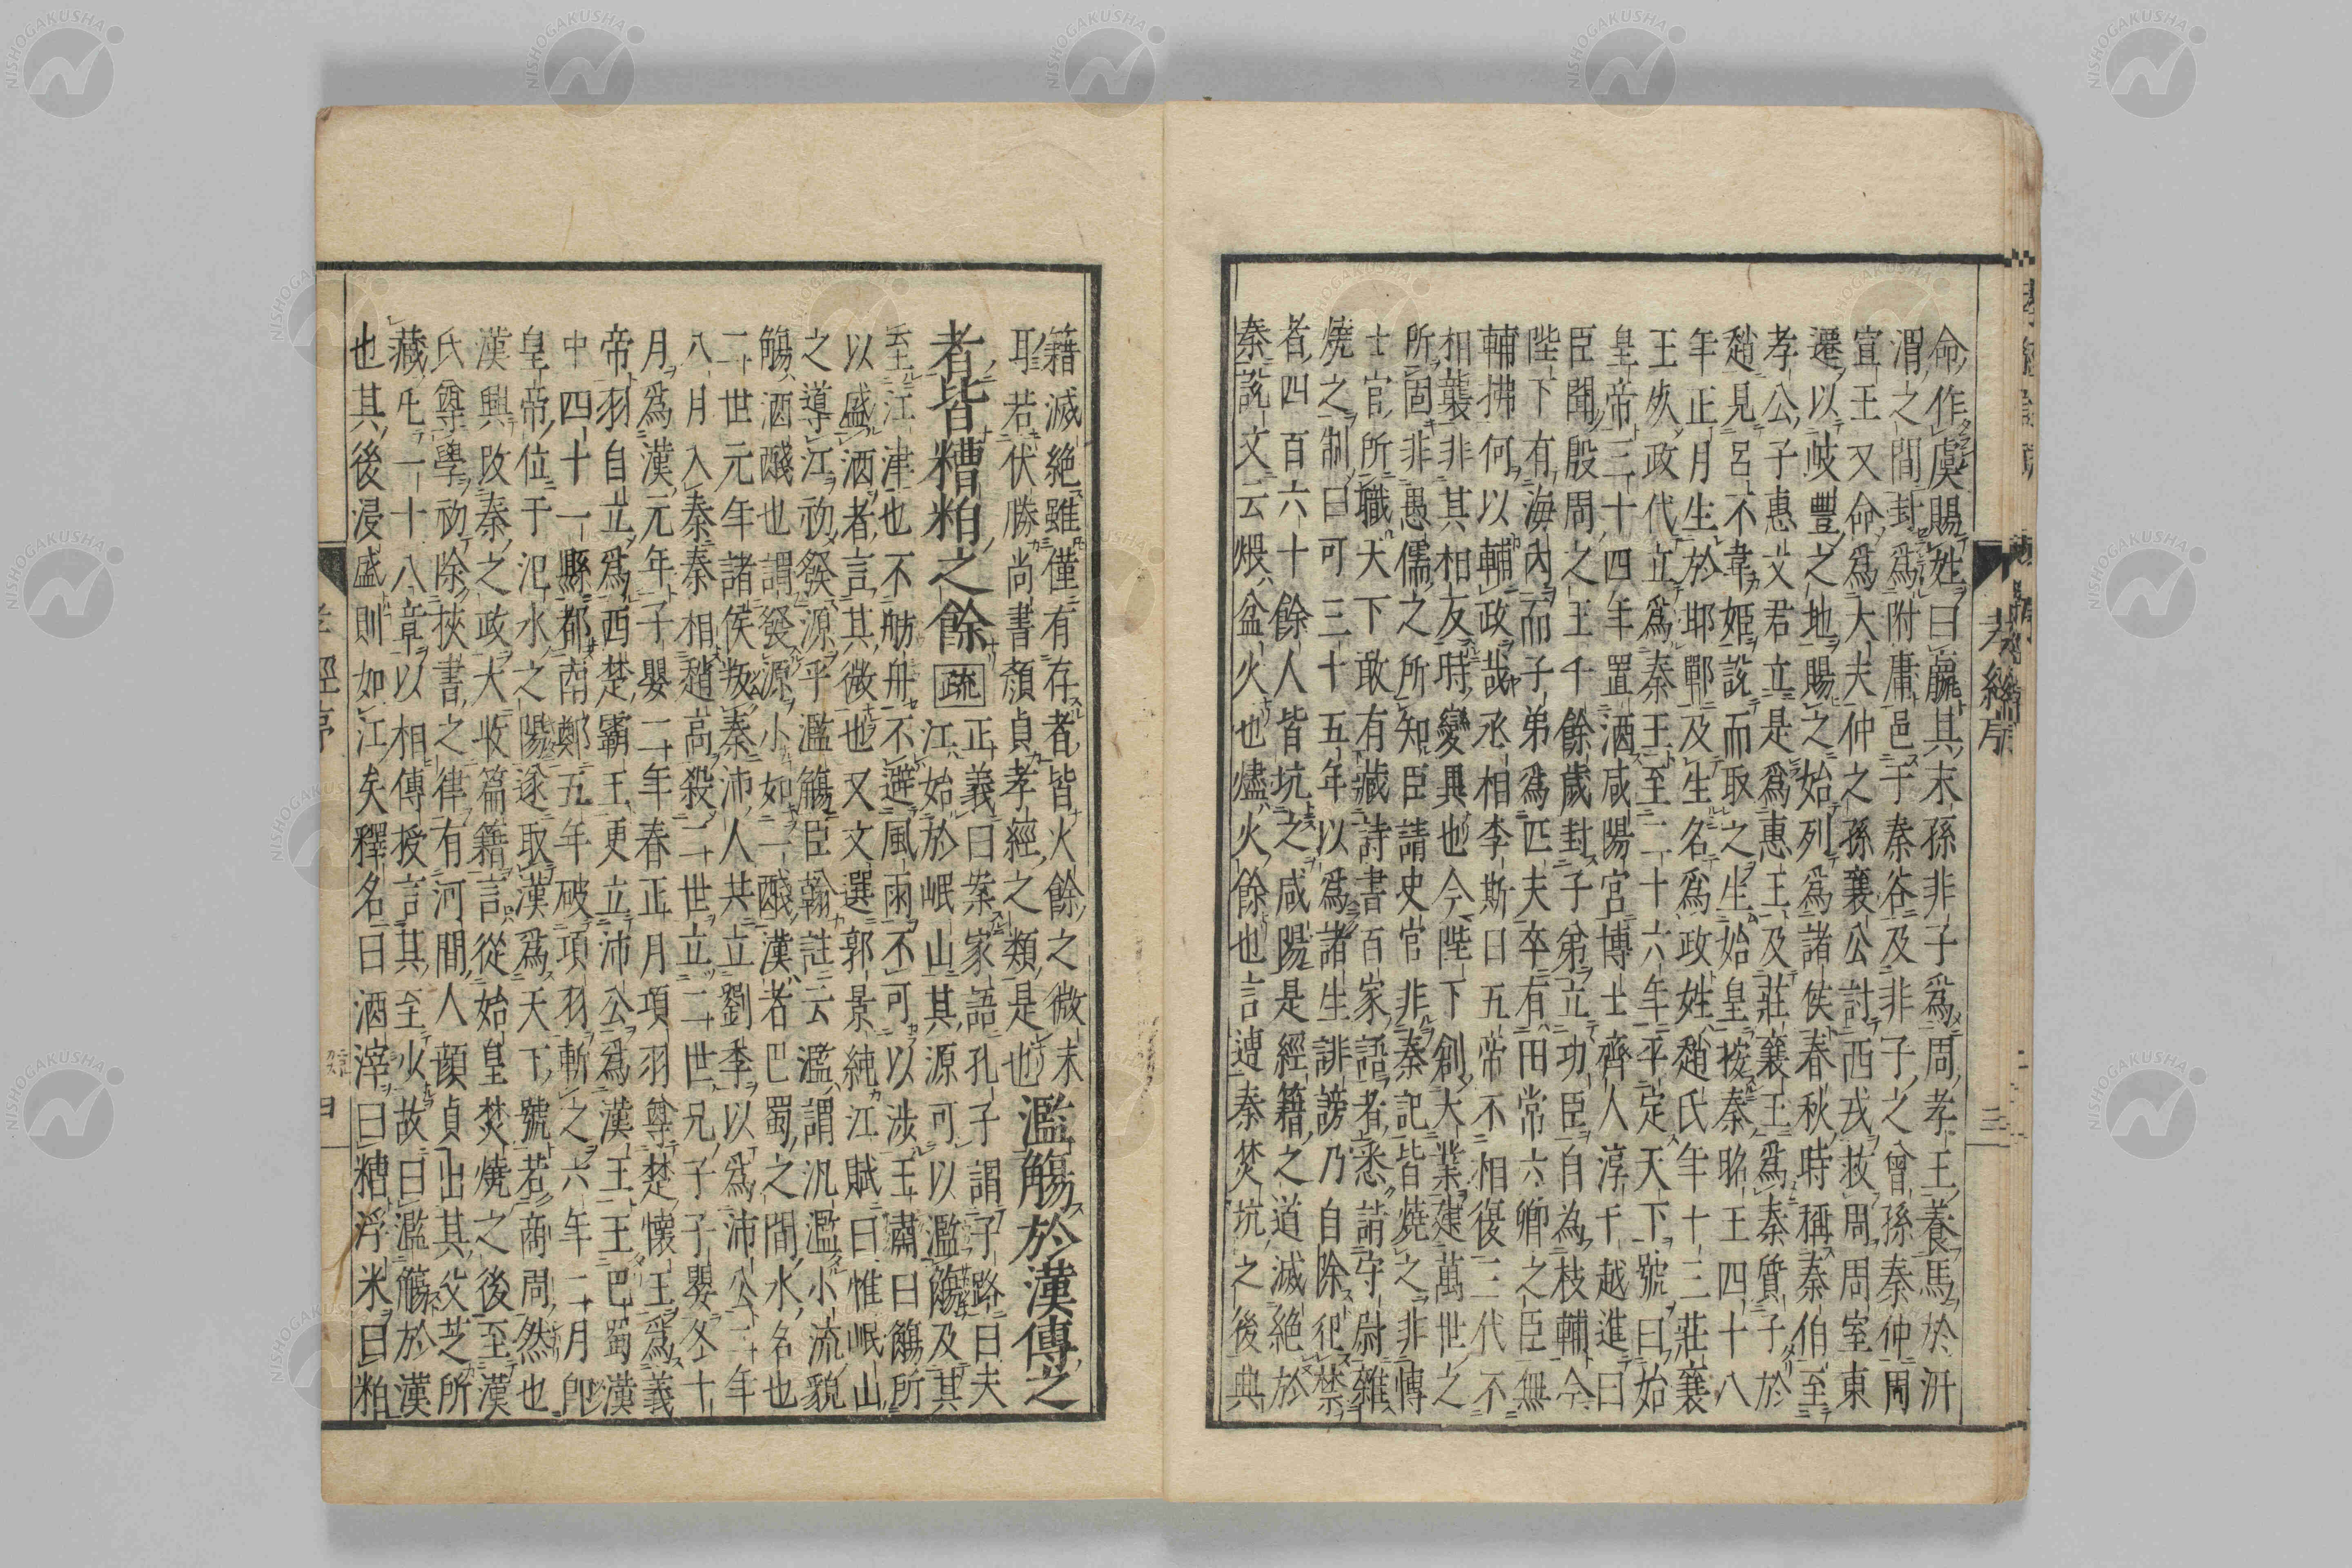 命作虞賜姓曰嬴其末孫非子爲周孝王養馬於汧
渭之間封爲附庸邑于秦谷及非子之曾孫秦仲周
宣王又命爲大夫仲之孫襄公討西戎救周周室東
遷以岐豐之地賜之始列爲諸侯春秋時稱秦伯至
孝公子惠文君立是爲惠王及莊襄王爲秦質子於
趙見呂不韋姬說而取之生始皇以秦昭王四十八
年正月生於邯鄲及生名爲政姓趙氏年十三莊襄
王歿政代立爲秦王至二十六年平定天下號曰始
皇帝三十四年置酒咸陽宮博士齊人淳于越進曰
臣聞殷周之王千餘歲封子弟立功臣自為枝輔今
陛下有海內而子弟爲匹夫卒有田常六卿之臣無
輔拂何以輔政哉丞相李斯曰五常不相復三代不
相襲非其相反時變異也今陛下創大業建萬世之
所固非愚儒之所知臣請史官非秦記皆燒之非博
士官所職天下敢有藏詩書百家語者悉請守尉雜
燒之制曰可三十五年以爲諸生誹謗乃自除犯禁
者四百六十餘人皆坑之咸陽是經籍之道滅絕於
秦說文云煨盆火也燼火餘也言遭秦焚坑之後典
孝經序
三
籍滅絕雖僅有存者皆火餘之微末
耶若伏勝尚書顏貞孝經之類是也濫觴於漢傳之
者皆糟粕之餘疏正義曰案家語孔子謂子路曰夫
江始於岷山其源可以濫觴及其
至江津也不舫舟不避風雨不可以涉王肅曰觴所
以盛酒者言其微也又文選郭景純江賦曰惟岷山
之導江初發源乎濫觴臣翰註云濫謂汎濫小流貌
觴酒醆也謂發源小如一醆漢者巴蜀之間水名也
二世元年諸侯叛秦沛人共立劉季以爲沛公二年
八月入秦秦相趙高殺二世立二世兄子子嬰冬十
月爲漢元年子嬰二年春正月項羽尊楚懷王爲義
帝羽自立爲西楚霸王更立沛公爲漢王王巴蜀漢
中四十一縣都南鄭五年破項羽斬之六年二月卽
皇帝位于氾水之陽遂取漢爲天下號若商周然也
漢興改秦之政大收篇籍言從始皇焚燒之後至漢
氏尊學初除挾書之律有河間人顏貞出其父芝所
藏凡一十八章以相傳授言其至火故曰濫觴於漢
也其後浸盛則如江矣釋名曰酒滓曰糟浮米曰粕